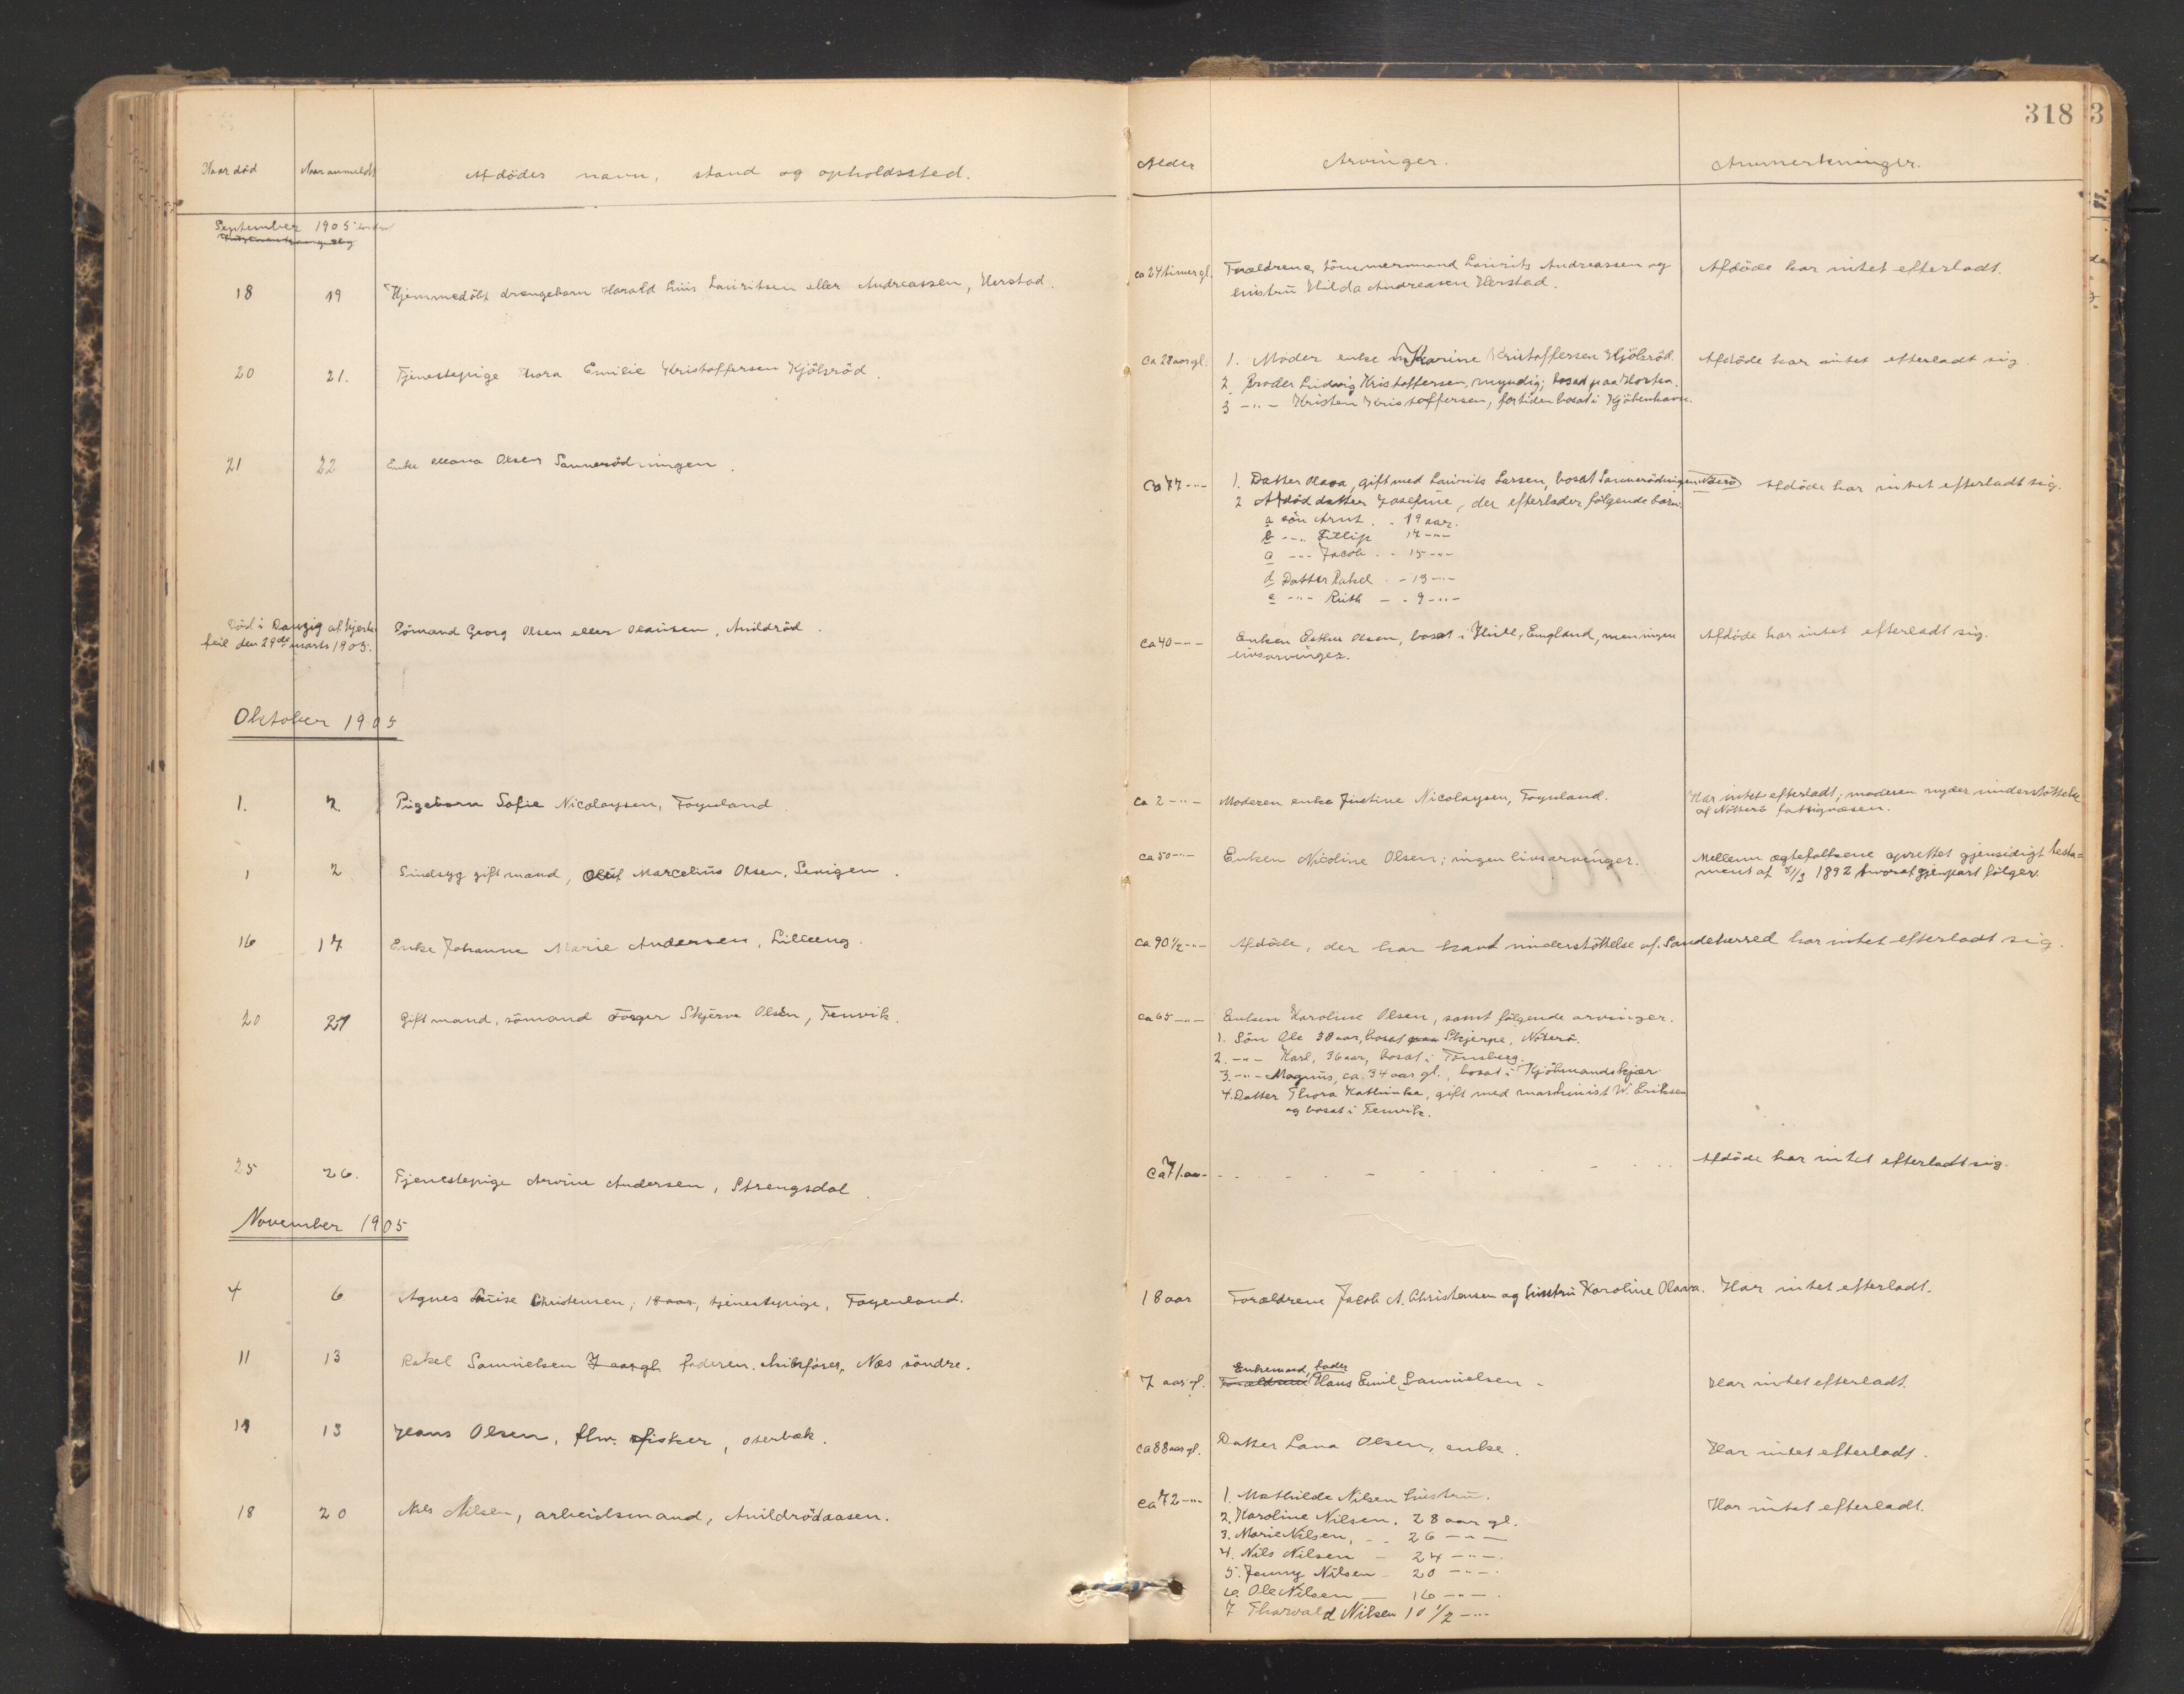 318
Naar död Naar anmeldt Afdödes navn, stand og opholdssted. Alder Arvinger. Anmerkninger.
September 1905
18 19 Hjemmedöbt drengebarn Harald Lüis Lauritsen eller Andreassen, Herstad. ca 24 timer gl. Forældrene, tömmermand Laurits Andreassen og Afdöde har intet efterladt.
hustrü Hilda Andreasen Herstad.
20 21. Tjenestepige Thora Emilie Kristoffersen Kjölsröd. ca 28 aar gl. 1. Moder enke Karine Kristoffersen Kjölsröd. Afdöde har intet efterladt sig
2. Broder Ludvig Kristoffersen, myndig; bosad paa Horten.
3 -"- Kristen Kristoffersen, for tiden bosat i Kjöbenhavn.
21 22 Enke Maria Olsen Sannerödningen. Ca 77 -"- 1. Datter Olava, gift med Laurits Larsen, bosat Sannerödningen Nöterö Afdöde har intet efterladt sig.
2 Afdöd datter Josefine, der efterlader fölgende barn.
a sön Arnt . - 19 aar.
b -"- Fillip 17 -"-
c -"- Jacob . - 15 -"-
d Datter Rakel . - 13 -"-
e -"- Rüth - - 9 -"-
Död i Danzig af hjerte Sömand Georg Olsen eller Olaüsen, Auldröd. ca 40 -"- Enken Esther Olsen, bosat i Hüll, England, men ingen Afdöde har intet efterladt sig.
feil den 29de marts 1905. livsarvinger.
Oktober 1905
1. 2. Pigebarn Sofie Nicolaysen, Föynland. ca 2 -"- Moderen enke Jüstine Nicolaysen, Föynland. Har intet efterladt; moderen nyder understöttelse
af Nötterö fattigvæsen.
1 2 Sindsyg gift mand, Olüf Marcelius Olsen, Sevigen. ca 50 -"- Enken Nicoline Olsen; ingen livsarvinger. Mellem ægtefolkene oprettet gjensidigt testa=
ment af 31/3 1892 hvoraf gjenpart fölger.
16 17 Enke Johanne Marie Andersen, Lilleeng. ca 90 1/2 -"- Afdöde, der har havt understöttelse af Sandeherred har intet efterladt sig.
20 21 Gift mand, sömand Torger Skjerve Olsen, Tenvik. ca 65 -"- Enken Karoline Olsen, samt fölgende arvinger.
1. Sön Ole 38 aar, bosat paa Skjerpe, Nöterö.
2. -"- Karl, 36 aar, bosat i Tönsberg.
3. -"- Magnüs, ca. 34 aar gl., bosat i Kjöbmandskjær.
4. Datter Thora Kathinka, gift med maskinist W. Eriksen
og bosat i Tenvik.
25 26. Tjenestepige Arvine Andersen, Strengsdal. Ca 71. aar Afdöde har intet efterladt sig.
November 1905
4 6 Agnes Loüise Christensen; 18 aar, tjenestepige, Föyenland. 18 aar Forældrene Jacob A. Christensen og hüstrü Karoline Olava. Har intet efterladt.
11 13 Rakel Samüelsen 7 aar gl. faderen, Næs söndre. 7 aar gl. Forældrene Enkemand, fader Hans Emil Samüelsen - Har intet efterladt.
11 13 Hans Olsen, fhv. fisker, Oterbæk. ca 88 aar gl. Datter Lava Olsen, enke. Har intet efterladt.
18 20 Nils Nilsen, arbeidsmand, Auildrödaasen. ca 72 -"- 1. Mathilde Nilsen hüstrü. Har intet efterladt.
2. Karoline Nilsen. 28 aar gl.
3. Marie Nilsen, - - 26 -"-
4. Nils Nilsen - 24 -"-
5. Jenny Nilsen - 20 -"-
6. Ole Nilsen - 16 -"-
7 Tharvald Nilsen 10 1/2 -"-